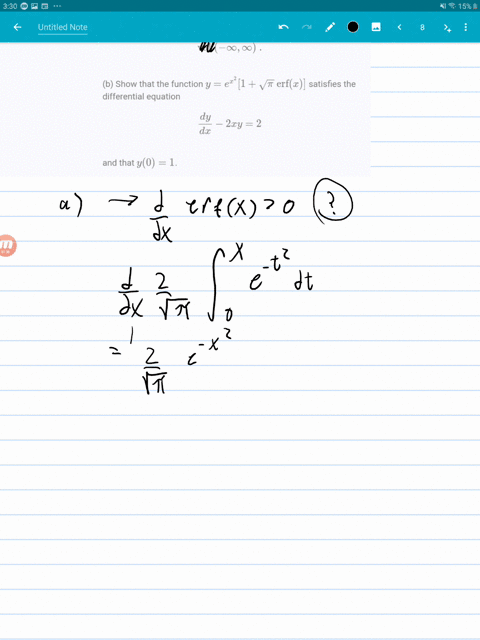 3:30 15%
Untitled Note 8
(−∞, ∞) .
(b) Show that the function y = e^{x^2}[1 + √π erf(x)] satisfies the
differential equation
dy/dx − 2xy = 2
and that y(0) = 1.
a) → d/dx erf(x) > 0 ?
d/dx 2/√π ∫_0^x e^{-t^2} dt
= 2/√π e^{-x^2}